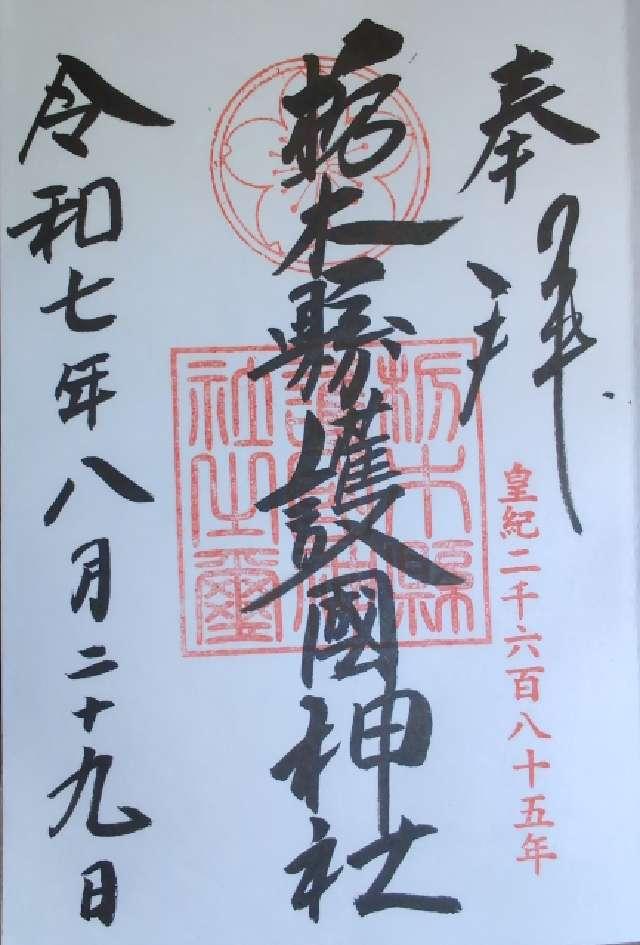 奉拝
皇紀二千六百八十五年
栃木縣護國神社
栃木縣護國神社之璽
令和七年八月二十九日